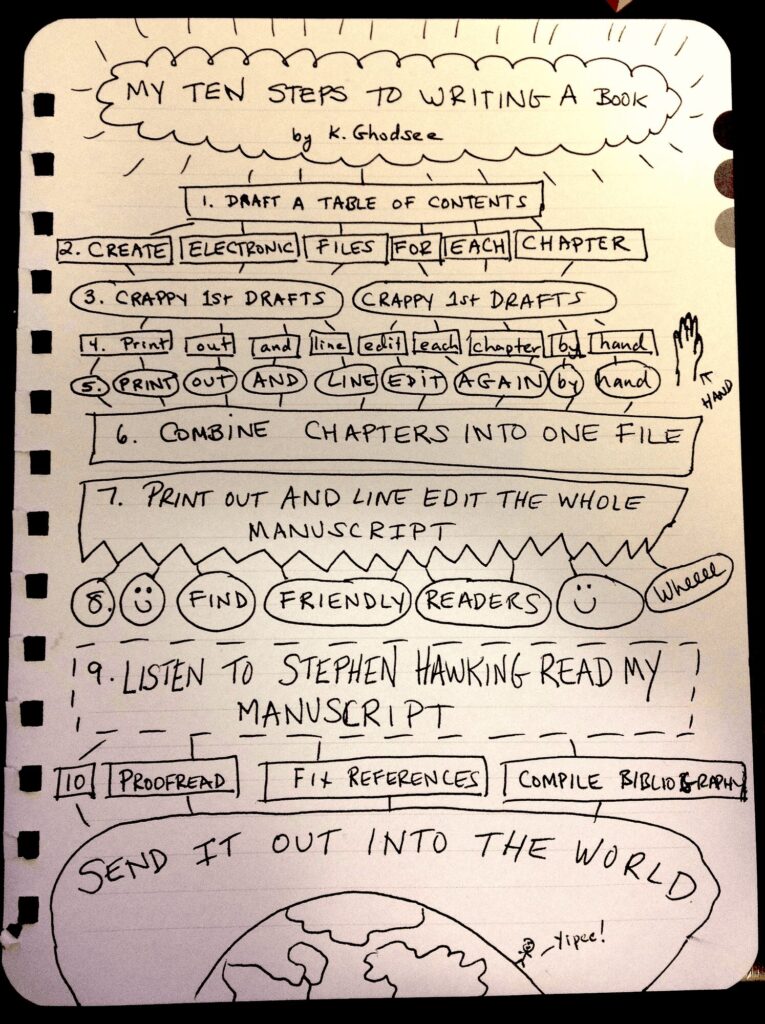 MY TEN STEPS TO WRITING A BOOK
by K. Ghodsee
1. DRAFT A TABLE OF CONTENTS
2. CREATE ELECTRONIC FILES FOR EACH CHAPTER
3. CRAPPY 1st DRAFTS CRAPPY 1st DRAFTS
4. Print out and line edit each chapter by hand
5. PRINT OUT AND LINE EDIT AGAIN by hand
HAND
6. COMBINE CHAPTERS INTO ONE FILE
7. PRINT OUT AND LINE EDIT THE WHOLE
MANUSCRIPT
8. FIND FRIENDLY READERS Wheeee
9. LISTEN TO STEPHEN HAWKING READ MY
MANUSCRIPT
10 PROOFREAD FIX REFERENCES COMPILE BIBLIOGRAPHY
SEND IT OUT INTO THE WORLD
Yipee!